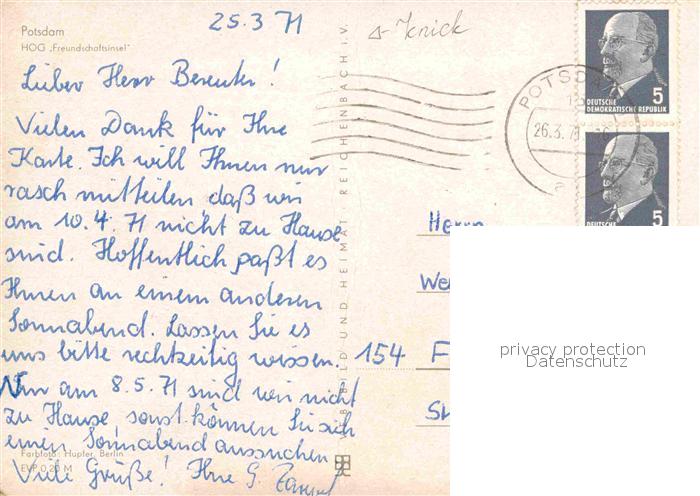 Potsdam
HOG „Freundschaftsinsel"
25.3 71
Lieber Herr Bereuter!
Vielen Dank für Ihre
Karte. Ich will Ihnen nur
rasch mitteilen daß wir
am 10.4.71 nicht zu Hause
sind. Hoffentlich paßt es
Ihnen an einem anderen
Sonnabend. Lassen Sie es
uns bitte rechtzeitig wissen.
Nur am 8.5.71 sind wir nicht
zu Hause, sonst können Sie sich
einen Sonnabend aussuchen
Viele Grüße! Ihre G.
Farbfoto: Hupfer, Berlin
EVP 0,20 M
VEB BILD UND HEIMAT REICHENBACH i.V.
Knick
POTSDA
26.3.71
DEUTSCHE
DEMOKRATISCHE REPUBLIK
5
DEUTSCHE
5
Herrn
We
154 F
privacy protection
Datenschutz